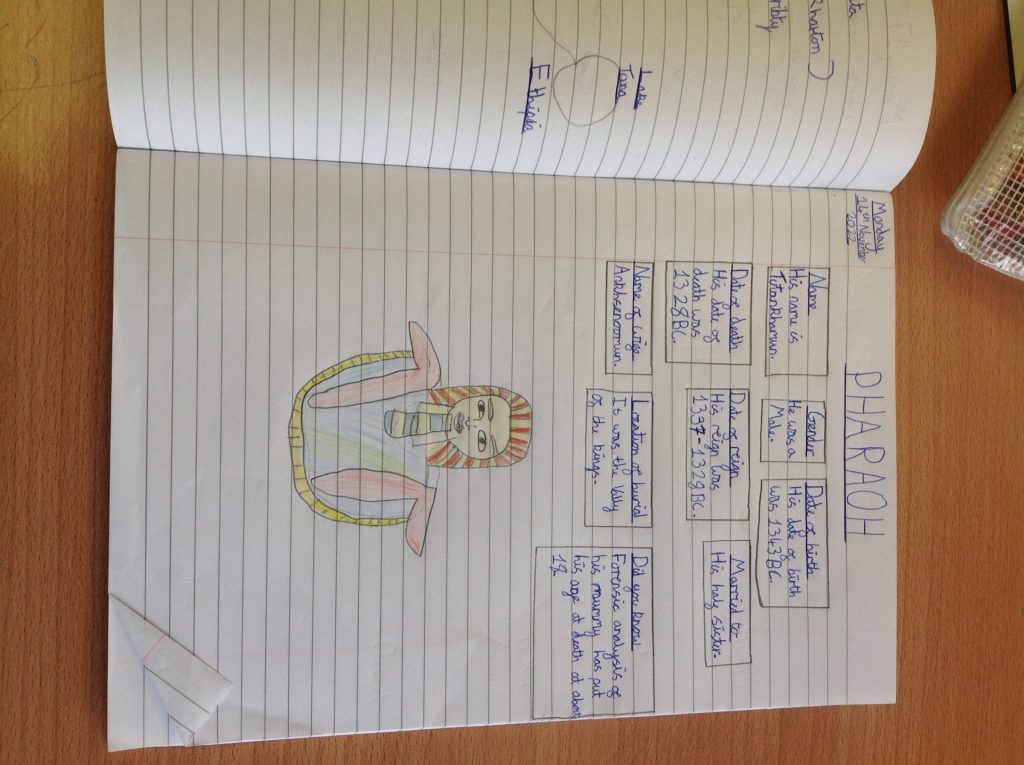 Lake
Tana
Ethipia
Monday
14th November
2022
PHARAOH
Name
His name is
Tutankhamun.
Gender
He was a
Male.
Date of birth
His date of birth
was 1343BC.
Date of death
His date of
death was
1328BC.
Date of reign
His reign was
1337-1328BC.
Married to:
His half sister.
Name of wife
Ankhsenoomun.
Location of burial
It was the Vally
of the kings.
Did you know
Forensic analysis of
his mummy has put
his age at death at about
18.